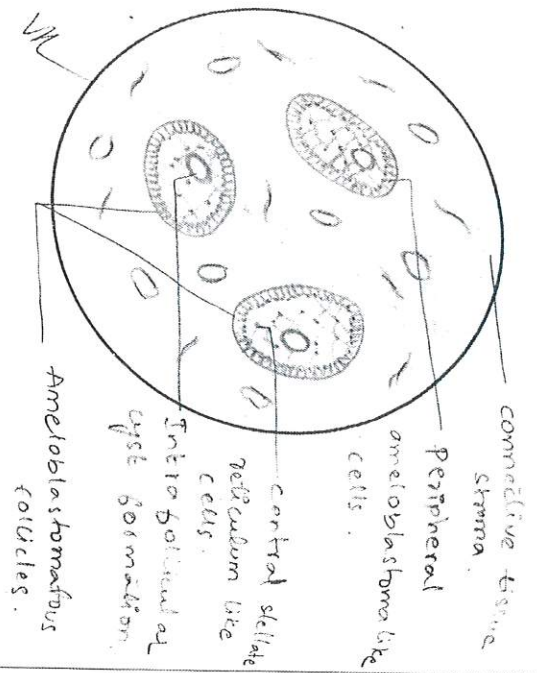 connective tissue
stroma.
Peripheral
ameloblastoma like
cells.
central stellate
reticulum like
cells.
Intrafollicular
cyst formation.
Ameloblastomatous
follicles.